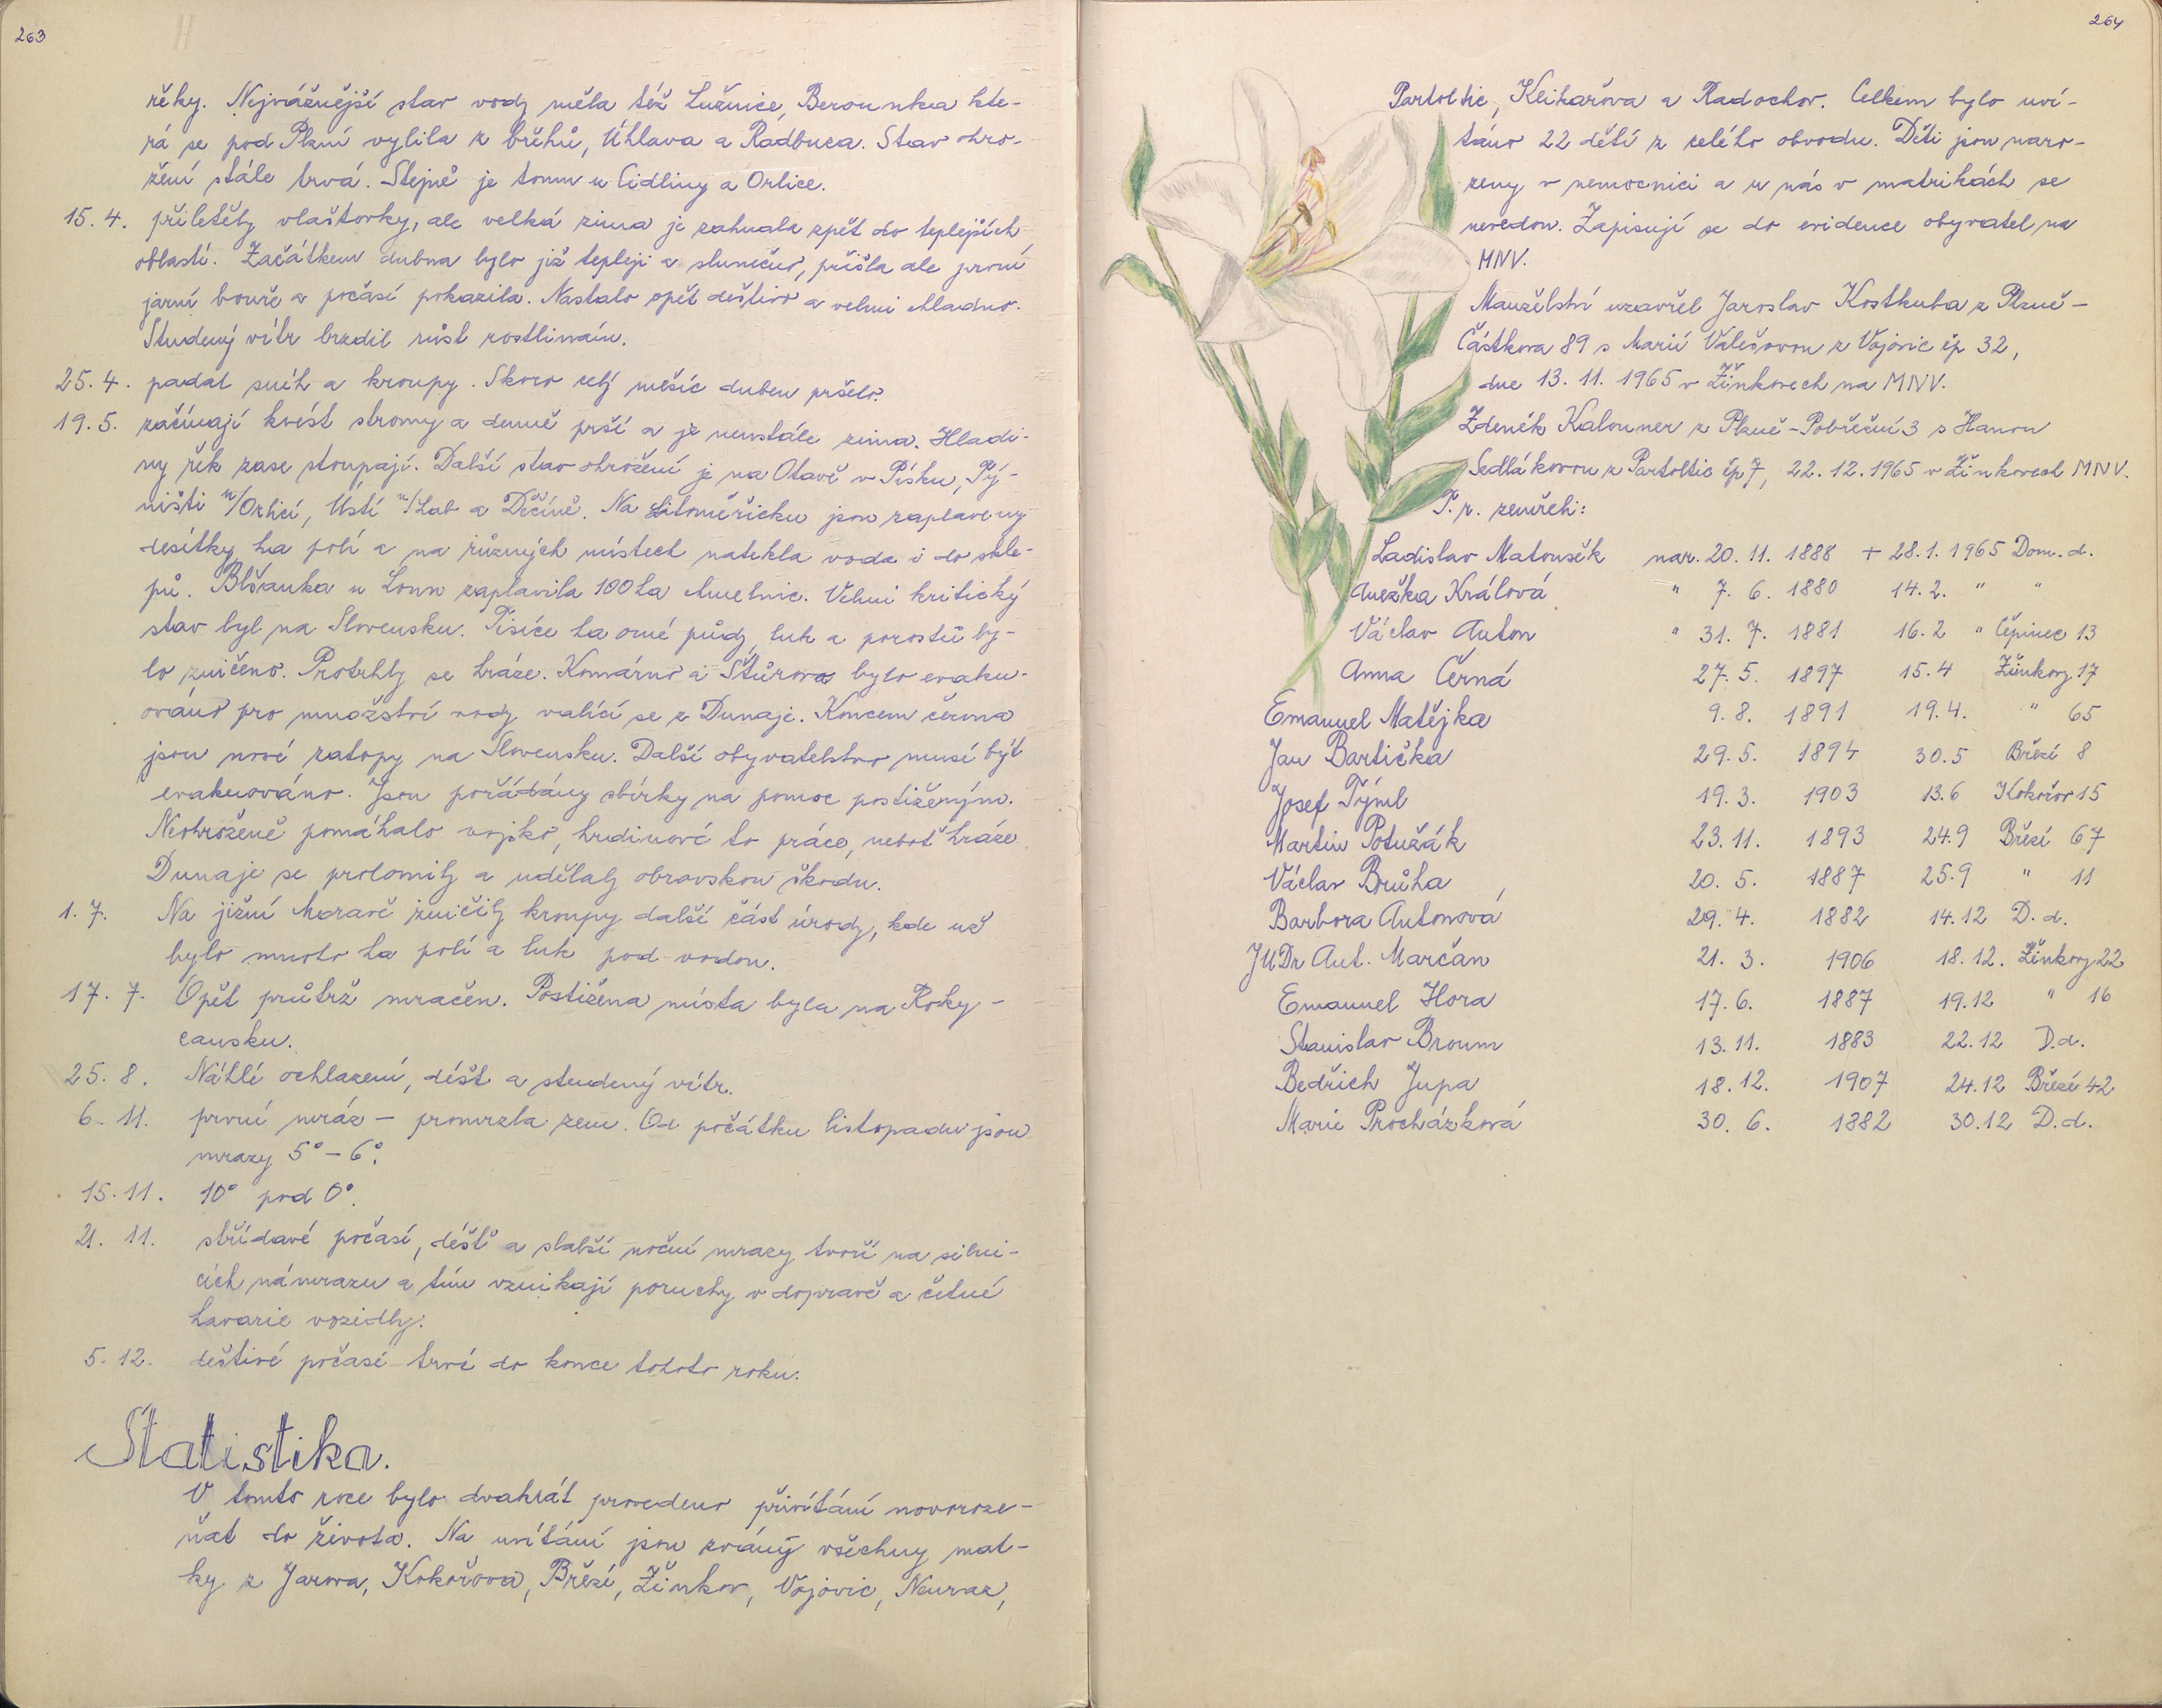 263
řěky. Nejvážnější stav vody měla též Lužnice, Berounka kte-
rá se pod Plzní vylila z břehů, Úhlava a Radbuza. Stav ohro-
žení stále trvá. Stejně je tomu u Cidliny a Orlice.
15. 4. přiletěly vlaštovky, ale velká zima je zahnala zpět do teplejších
oblastí. Začátkem dubna bylo již tepleji a slunečno, přišla ale první
jarní bouře a počasí pokazila. Nastalo opět deštivo a velmi chladno.
Studený vítr brzdil růst rostlinám.
25. 4. padal sníh a kroupy. Skoro celý měsíc duben pršelo.
19. 5. začínají kvést stromy a denně prší a je neustále zima. Hladi-
ny řek zase stoupají. Další stav ohrožení je na Otavě v Písku, Tý-
ništi n/Orlicí, Ústí n/Lab a Děčíně. Na Litoměřicku jsou zaplaveny
desítky ha polí a na různých místech natekla voda i do skle-
pů. Blšanka u Loun zaplavila 100 ha chmelnic. Velmi kritický
stav byl na Slovensku. Tisíce ha orné půdy, luk a porostů by-
lo zničeno. Protrhly se hráze. Komárno a Štúrovo bylo evaku-
ováno pro množství vody valící se z Dunaje. Koncem června
jsou nové zátopy na Slovensku. Další obyvatelstvo musí být
evakuováno. Jsou pořádány sbírky na pomoc postiženým.
Neohroženě pomáhalo vojsko, hrdinové to práce, neboť hráze
Dunaje se prolomily a udělaly obrovskou škodu.
1. 7. Na jižní Moravě zničily kroupy další část úrody, kde už
bylo mnoho ha polí a luk pod vodou.
17. 7. Opět průtrž mračen. Postižena místa byla na Roky-
cansku.
25. 8. Náhlé ochlazení, déšt a studený vítr.
6. 11. první mráz – promrzla zem. Od počátku listopadu jsou
mrazy 5° – 6°.
15. 11. 10° pod 0°.
21. 11. střídavé počasí, déšť a slabší noční mrazy tvoří na silni-
cích námrazu a tím vznikají poruchy v dopravě a četné
havarie vozidly.
5. 12. deštivé počasí trvá do konce tohoto roku.
Statistika.
V tomto roce bylo dvakrát provedeno přivítání novoroze-
ňat do života. Na uvítání jsou zvány všechny mat-
ky z Jarova, Kokořova, Březí, Žinkov, Vojovic, Neuraz,
264
Partoltic, Klikařova a Radochov. Celkem bylo uví-
táno 22 dětí z celého obvodu. Děti jsou naro-
zeny v nemocnici a u nás v matrikách se
nevedou. Zapisují se do evidence obyvatel na
MNV.
Manželství uzavřel Jaroslav Kostkuba z Plzně –
Částkova 89 s Marií Válešovou z Vojovic čp 32,
dne 13. 11. 1965 v Žinkovech na MNV.
Zdeněk Kalouner z Plzně – Pobřežní 3 s Hanou
Sedlákovou z Partoltic čp 7, 22. 12. 1965 v Žinkovech MNV.
T. r. zemřeli:
Ladislav Matoušek nar. 20. 11. 1888 + 28. 1. 1965 Dom. d.
Anežka Králová " 7. 6. 1880 14. 2. " "
Václav Anton " 31. 7. 1881 16. 2 " Čepinec 13
Anna Černá 27. 5. 1897 15. 4 Žinkovy 17
Emanuel Matějka 9. 8. 1891 19. 4. " 65
Jan Bartička 29. 5. 1894 30. 5 Březí 8
Josef Týml 19. 3. 1903 13. 6 Kokořov 15
Martin Potužák 23. 11. 1893 24. 9 Březí 67
Václav Brůha 20. 5. 1887 25. 9 " 11
Barbora Antonová 29. 4. 1882 14. 12 D. d.
JUDr Ant. Marčan 21. 3. 1906 18. 12. Žinkovy 22
Emanuel Hora 17. 6. 1887 19. 12 " 16
Stanislav Broum 13. 11. 1883 22. 12 D. d.
Bedřich Jupa 18. 12. 1907 24. 12 Březí 42
Marie Procházková 30. 6. 1882 30. 12 D. d.